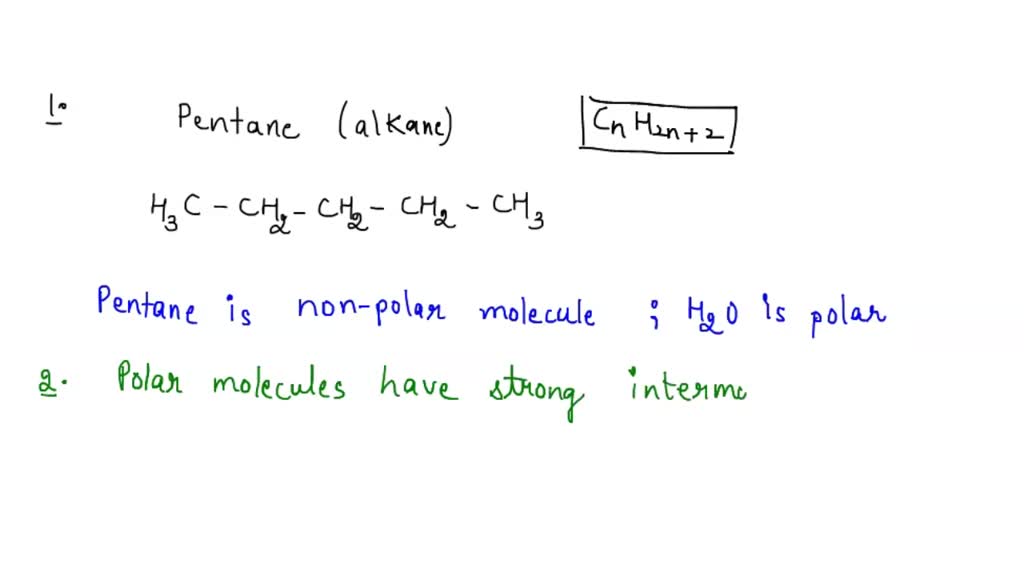 1. Pentane (alkane) CnH2n+2
H3C - CH2 - CH2 - CH2 - CH3
Pentane is non-polar molecule ; H2O is polar
2. Polar molecules have strong interma